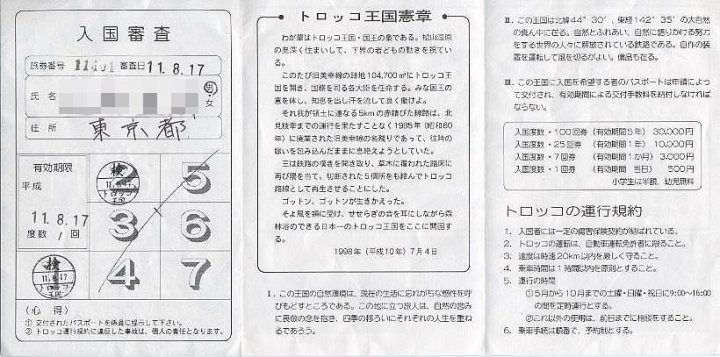 入国審査
旅券番号 11401 審査日 11.8.17
氏名
男・女
住所 東京都
有効期限
平成
11.8.17
度数 1回
検
11.8.17
トロッコ
王国
5
3
6
検
11.8.17
トロッコ
王国
4
7
(心得)
① 交付されたパスポートを係員に提示して下さい。
② トロッコ運行規約に違反した事故は、個人の責任となります。
トロッコ王国憲章
わが輩はトロッコ王国・国王の梟である。松山湿原
の奥深く住まいして、下界の者どもの動きを視てい
る。
このたび旧美幸線の路地104,700㎡にトロッコ王
国を開き、国務を司る各大臣を任命する。みな国王の
意を体し、知恵を出し汗を流して良く働けよ。
それ我が領土に連なる5kmの赤錆びた線路は、北
見枝幸までの運行を果たすことなく1985年(昭和60
年)に廃業された旧美幸線の名残りであって、往時の
賑いを包み込んだままに息絶えようとしていた。
王は鉄路の嘆きを聞き取り、草木に覆われた臨床に
再び隈を当て、切断された5個所をも結んでトロッコ
路線として再生させることにした。
ゴットン、ゴットンが生きかえった。
そよ風を頬に受け、せせらぎの音を耳にしながら森
林浴のできる日本一のトロッコ王国をここに開国す
る。
1998年(平成10年)7月4日
Ⅰ. この王国の自然環境は、現在の生活に忘れがちな感性を呼
びもどすところである。この地に立つ旅人は、自然の営み
に畏敬の念を抱き、四季の移ろいにそれぞれの人生を重ね
るであろう。
Ⅱ. この王国は北緯44°30′、東経142°35′の大自然
の真ん中に在る。自然とふれあい、自然に語りかける努力
をする世界の人々に解放されている鉄道である。自作の装
置を運転して風を切るがよい。備品も在る。
Ⅲ. この王国に入国を希望する者のパスポートは申請によっ
て交付され、有効期間による交付手数料を納付しなければ
ならない。
入国度数・100回券(有効期間5年) 30,000円
入国度数・25回券(有効期間1年) 10,000円
入国度数・7回券(有効期間1か月) 3,000円
入国度数・1回券(有効期間 当日) 500円
小学生は半額、幼児無料
トロッコの運行規約
1. 入国者には一定の傷害保険契約が結ばれている。
2. トロッコの運転は、自動車運転免許者に限ること。
3. 速度は時速20km以内を厳しく守ること。
4. 乗車時間は1時間以内を原則とすること。
5. 運行の時間
①5月から10月までの土曜・日曜・祝日に9:00~16:00
の間を定時運行とする。
②これ以外の使用は、前日までに相談をすること。
6. 乗車手続は順番で、予約制とする。